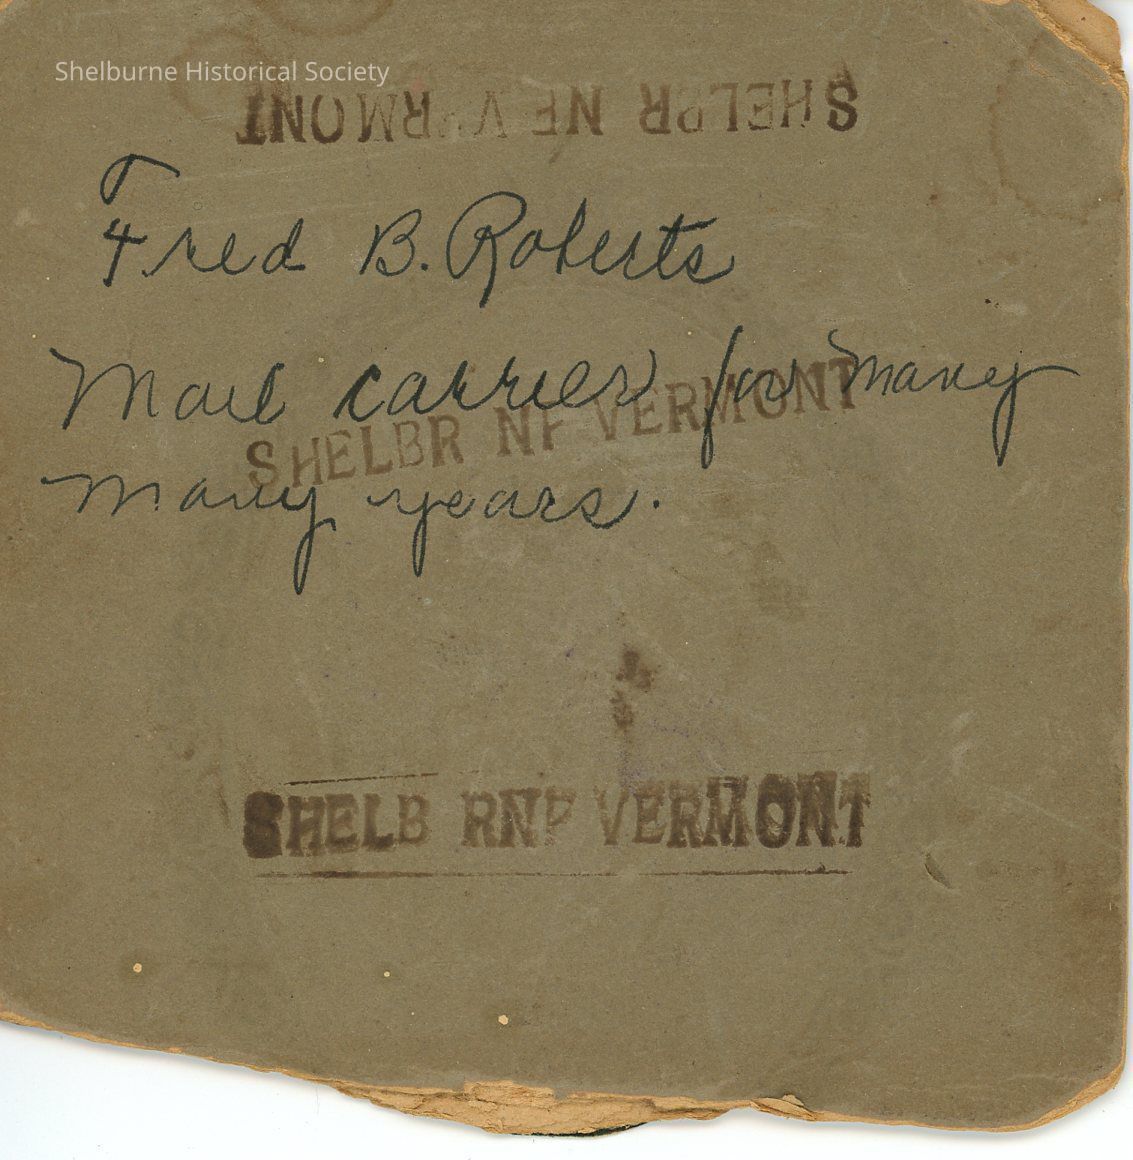 Shelburne Historical Society
SHELBR NE V RMONT
Fred B. Roberts
Mail carrier for many
SHELBR NF VERMONT
many years.
SHELB RNP VERMONT